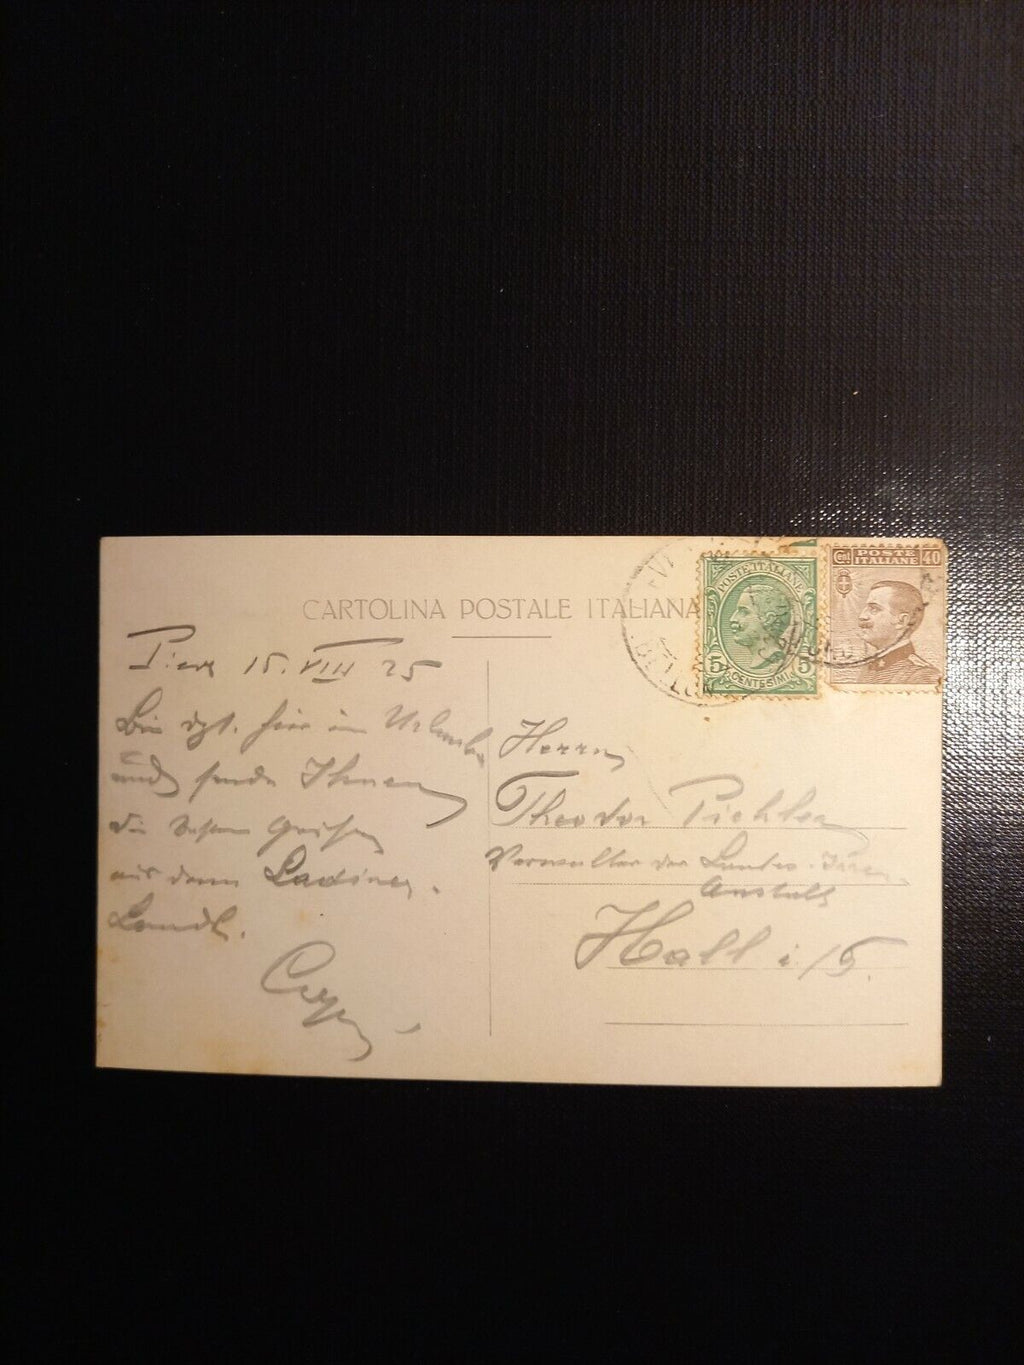 CARTOLINA POSTALE ITALIANA
POSTE ITALIANE
5 CENTESIMI 5
Cent POSTE 40
ITALIANE
15. VIII 25
Bin hier im Urlaube
und sende Ihnen
die besten Grüße
aus dem Ladiner
Landl.
Herrn
Theodor Pichler
Verwalter der Landes-Irren-
Anstalt
Hall i/T.